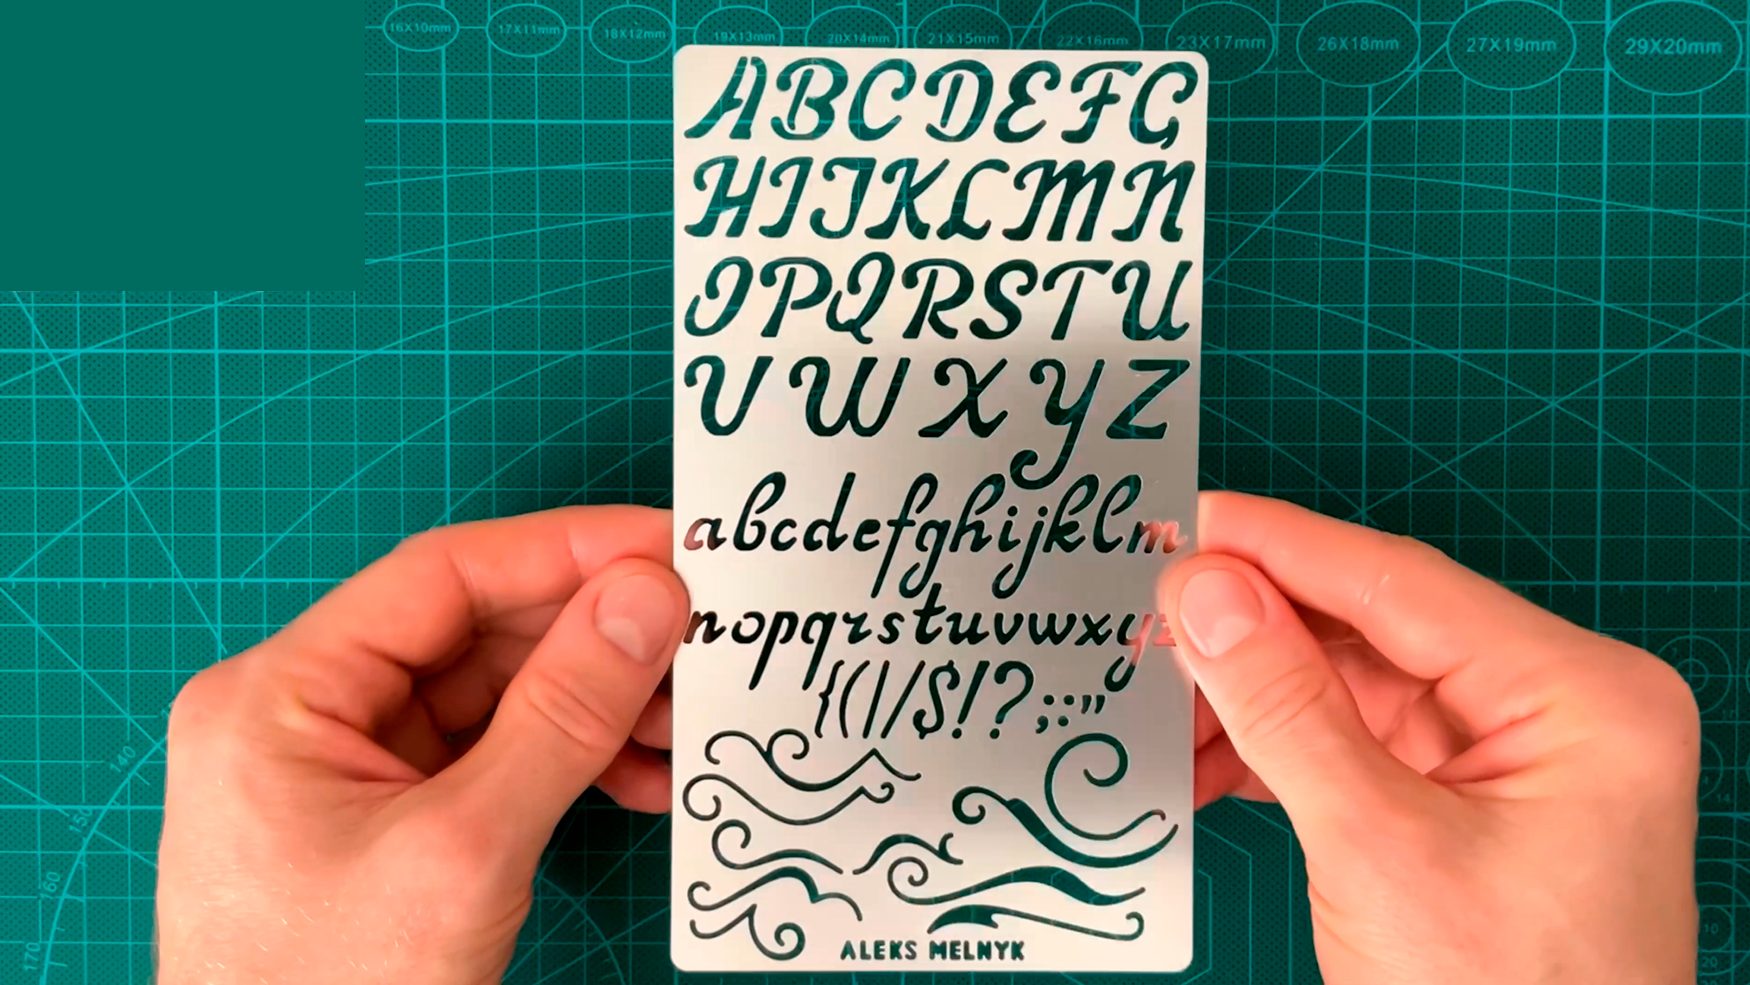 16X10mm 17X11mm 18X12mm 19X13mm 20X14mm 21X15mm 22X16mm 23X17mm 26X18mm 27X19mm 29X20mm
ABCDEFG
HIJKLMN
OPQRSTU
VWXYZ
abcdefghijklm
nopqrstuvwxyz
{(|/$!?;:”
ALEKS MELNYK
140
150
160
170
14
10
20